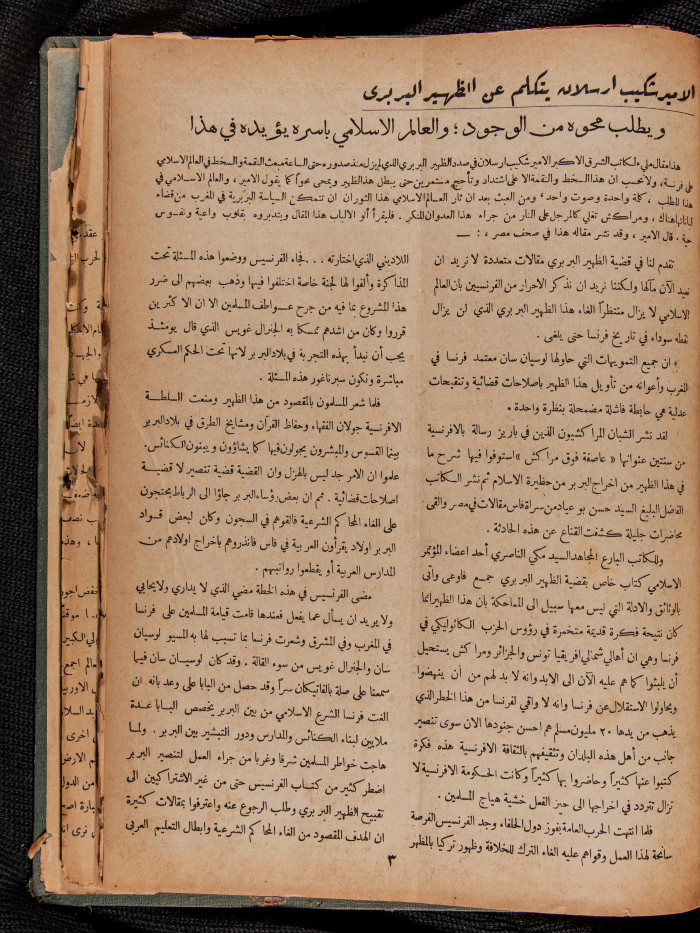 الامير شكيب ارسلان يتكلم عن الظهير البربرى
ويطلب محوه من الوجود؛ والعالم الاسلامي باسره يؤيده في هذا
هذا مقال مليء لكاتب الشرق الاكبر الامير شكيب ارسلان في صدد الظهير البربري الذي لم يزل منذ صدوره حتى الساعة مبعث النقمة والسخط في العالم الاسلامي
على فرنسة، ولا نحسب ان هذا السخط والنقمة الا على اشتداد وتأجج مستمرين حتى يبطل هذا الظهير ويمحى محواً كما يقول الامير، والعالم الاسلامي في
هذا المطلب، كلة واحدة وصوت واحد، ومن العبث بعد ان ثار العالم الاسلامي هذا الثوران ان تتمكن السياسة البربرية في المغرب من قضاء
لباناتها هناك، ومراكش تغلي كالمرجل على النار من جراء هذا العدوان المنكر. فليقرأ أو الالباب هذا المقال وليتدبروه بقلوب واعية ونفوس
قال الامير، وقد نشر مقاله هذا في صحف مصر، : —
تقدم لنا في قضية الظهير البربري مقالات متعددة لا نريد ان
نعيد الآن مآلها ولكننا نريد ان نذكر الاحرار من الفرنسيين بان العالم
الاسلامي لا يزال منتظراً الغاء هذا الظهير البربري الذي لن يزال
نقطه سوداء في تاريخ فرنسا حتى يلغى.
ان جميع التمويهات التي حاولها لوسيان سان معتمد فرنسا في
المغرب وأعوانه من تأويل هذا الظهير باصلاحات قضائية وتنقيحات
عدلية هي حابطة فاشلة مضمحلة بنظرة واحدة.
لقد نشر الشبان المراكشيون الذين في باريز رسالة بالافرنسية
من سنتين عنوانها « عاصفة فوق مراكش » استوفوا فيها شرح ما
في هذا الظهير من اخراج البربر من حظيرة الاسلام ثم نشر الكاتب
الفاضل البليغ السيد حسن بو عياد من سراة فاس مقالات في مصر والقى
محاضرات جليلة كشفت القناع عن هذه الحادثة.
وللكاتب البارع المجاهد السيد مكي الناصري أحد اعضاء المؤتمر
الاسلامي كتاب خاص بقضية الظهير البربري جمع فاوعى وأتى
بالوثائق والادلة التي ليس معها سبيل الى المماحكة بان هذا الظهير انما
كان نتيجة فكرة قديمة متخمرة في رؤوس الحزب الكاثوليكي في
فرنسا وهي ان أهالي شمالي افريقيا تونس والجزائر ومراكش يستحيل
أن يلبثوا كما هم عليه الآن الى الابد وانه لا بد لهم من أن ينهضوا
ويحاولوا الاستقلال عن فرنسا وانه لا واقي لفرنسا من هذا الخطر الذي
يذهب من يدها ٢٠ مليون مسلم هم احسن جنودها الان سوى تنصير
جانب من أهل هذه البلدان وتثقيفهم بالثقافة الافرنسية هذه فكرة
كتبوا عنها كثيراً وحاضروا بها كثيراً وكانت الحكومة الافرنسية لا
تزال تتردد في اخراجها الى حيز الفعل خشية هياج المسلمين.
فلما انتهت الحرب العامة بفوز دول الحلفاء وجد الفرنسيس الفرصة
سانحة لهذا العمل وقواهم عليه الغاء الترك للخلافة وظهور تركيا بالمظهر
اللاديني الذي اختارته ... فجاء الفرنسيس ووضعوا هذه المسئلة تحت
المذاكرة وألفوا لها لجنة خاصة اختلفوا فيها وذهب بعضهم الى ضرر
هذا المشروع بما فيه من جرح عواطف المسلمين الا ان الاكثرين
قرروا وكان من اشدهم تمسكا به الجنرال غويس الذي قال يومئذ
يجب أن نبدأ بهذه التجربة في بلاد البربر لانها تحت الحكم العسكري
مباشرة ونكون سبرنا غور هذه المسئلة.
فلما شعر المسلمون بالمقصود من هذا الظهير ومنعت السلطة
الافرنسية جولان الفقهاء وحفاظ القرآن ومشايخ الطرق في بلاد البربر
بينما القسوس والمبشرون يجولون فيها كما يشاؤون ويبنون الكنائس.
علموا ان الامر جد ليس بالهزل وان القضية قضية تنصير لا قضية
اصلاحات قضائية. ثم ان بعض رؤساء البربر جاؤا الى الرباط يحتجون
على الغاء المحاكم الشرعية فالقوهم في السجون وكان لبعض قواد
البربر اولاد يقرأون العربية في فاس فانذروهم باخراج اولادهم من
المدارس العربية أو يقطعوا رواتبهم.
مضى الفرنسيس في هذه الخطة مضي الذي لا يداري ولا يحابي
ولا يريد ان يسأل عما يفعل فعندها قامت قيامة المسلمين على فرنسا
في المغرب وفي المشرق وشعرت فرنسا بما تسبب لها به المسيو لوسيان
سان والجنرال غويس من سوء القالة. وقد كان لوسيان سان فيما
سمعنا على صلة بالفاتيكان سراً وقد حصل من البابا على وعد بانه ان
الغت فرنسا الشرع الاسلامي من بين البربر يخصص البابا عدة
ملايين لبناء الكنائس والمدارس ودور التبشير بين البربر. ولما
هاجت خواطر المسلمين شرقا وغربا من جراء العمل لتنصير البربر
اضطر كثير من كتاب الفرنسيس حتى من غير الاشتراكيين الى
تقبيح الظهير البربري وطلب الرجوع عنه واعترفوا بمقالات كثيرة
ان الهدف المقصود من الغاء المحاكم الشرعية وابطال التعليم العربي
٣